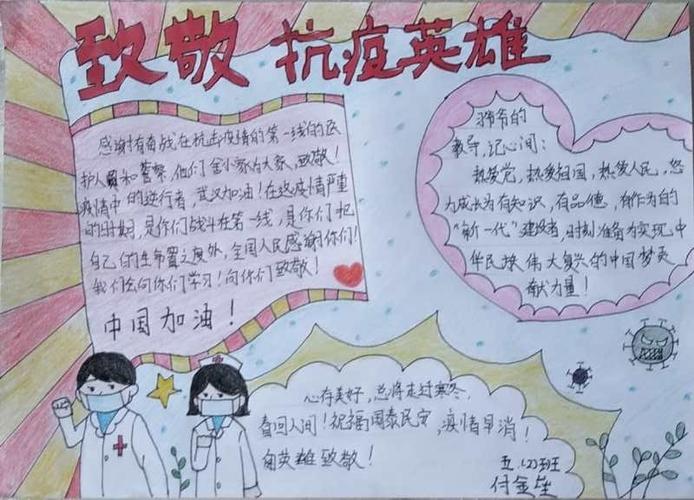 致敬 抗疫英雄
感谢有奋战在抗击疫情的第一线的医
护人员和警察,他们舍小家为大家,致敬!
疫情中的逆行者,武汉加油!在这疫情严重
的时期,是你们战斗在第一线,是你们把
自己的生命置之度外,全国人民感谢你们!
我们会向你们学习!向你们致敬!
中国加油!
爷爷的
教导,记心间:
热爱党,热爱祖国,热爱人民,努
力成长为有知识,有品德,有作为的
"新一代"建设者,时刻准备为实现中
华民族伟大复兴的中国梦贡
献力量!
心存美好,总将走过寒冬,
春回人间!祝福国泰民安,疫情早消!
向英雄致敬!
五.(2)班
付金